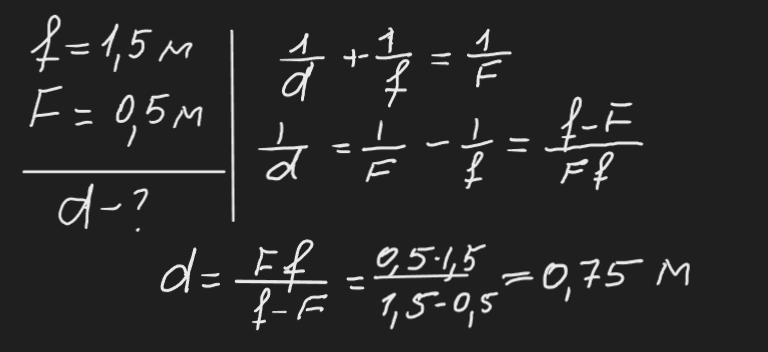 f = 1,5 м
F = 0,5 м
d - ?
1/d + 1/f = 1/F
1/d = 1/F - 1/f = (f-F)/(Ff)
d = Ff/(f-F) = (0,5·1,5)/(1,5-0,5) = 0,75 м